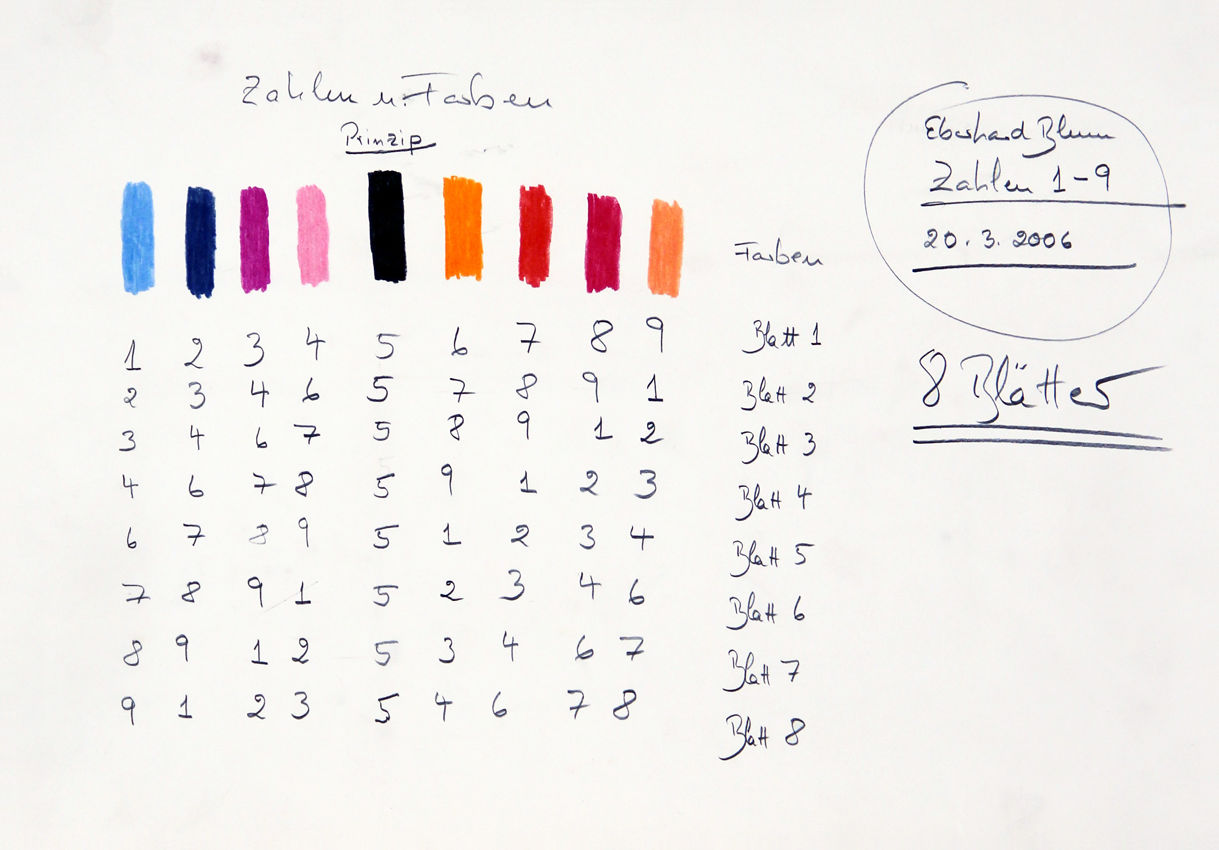 Zahlen u. Farben
Prinzip
Farben
1 2 3 4 5 6 7 8 9 Blatt 1
2 3 4 6 5 7 8 9 1 Blatt 2
3 4 6 7 5 8 9 1 2 Blatt 3
4 6 7 8 5 9 1 2 3 Blatt 4
6 7 8 9 5 1 2 3 4 Blatt 5
7 8 9 1 5 2 3 4 6 Blatt 6
8 9 1 2 5 3 4 6 7 Blatt 7
9 1 2 3 5 4 6 7 8 Blatt 8
Eberhard Blum
Zahlen 1-9
20.3.2006
8 Blätter